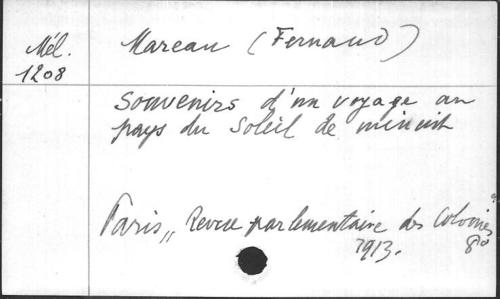 Mél.
1208
Mareau (Fernand)
Souvenirs d'un voyage au
pays du Soleil de minuit
Paris,, Revue parlementaire des Colonies
1913. 8°